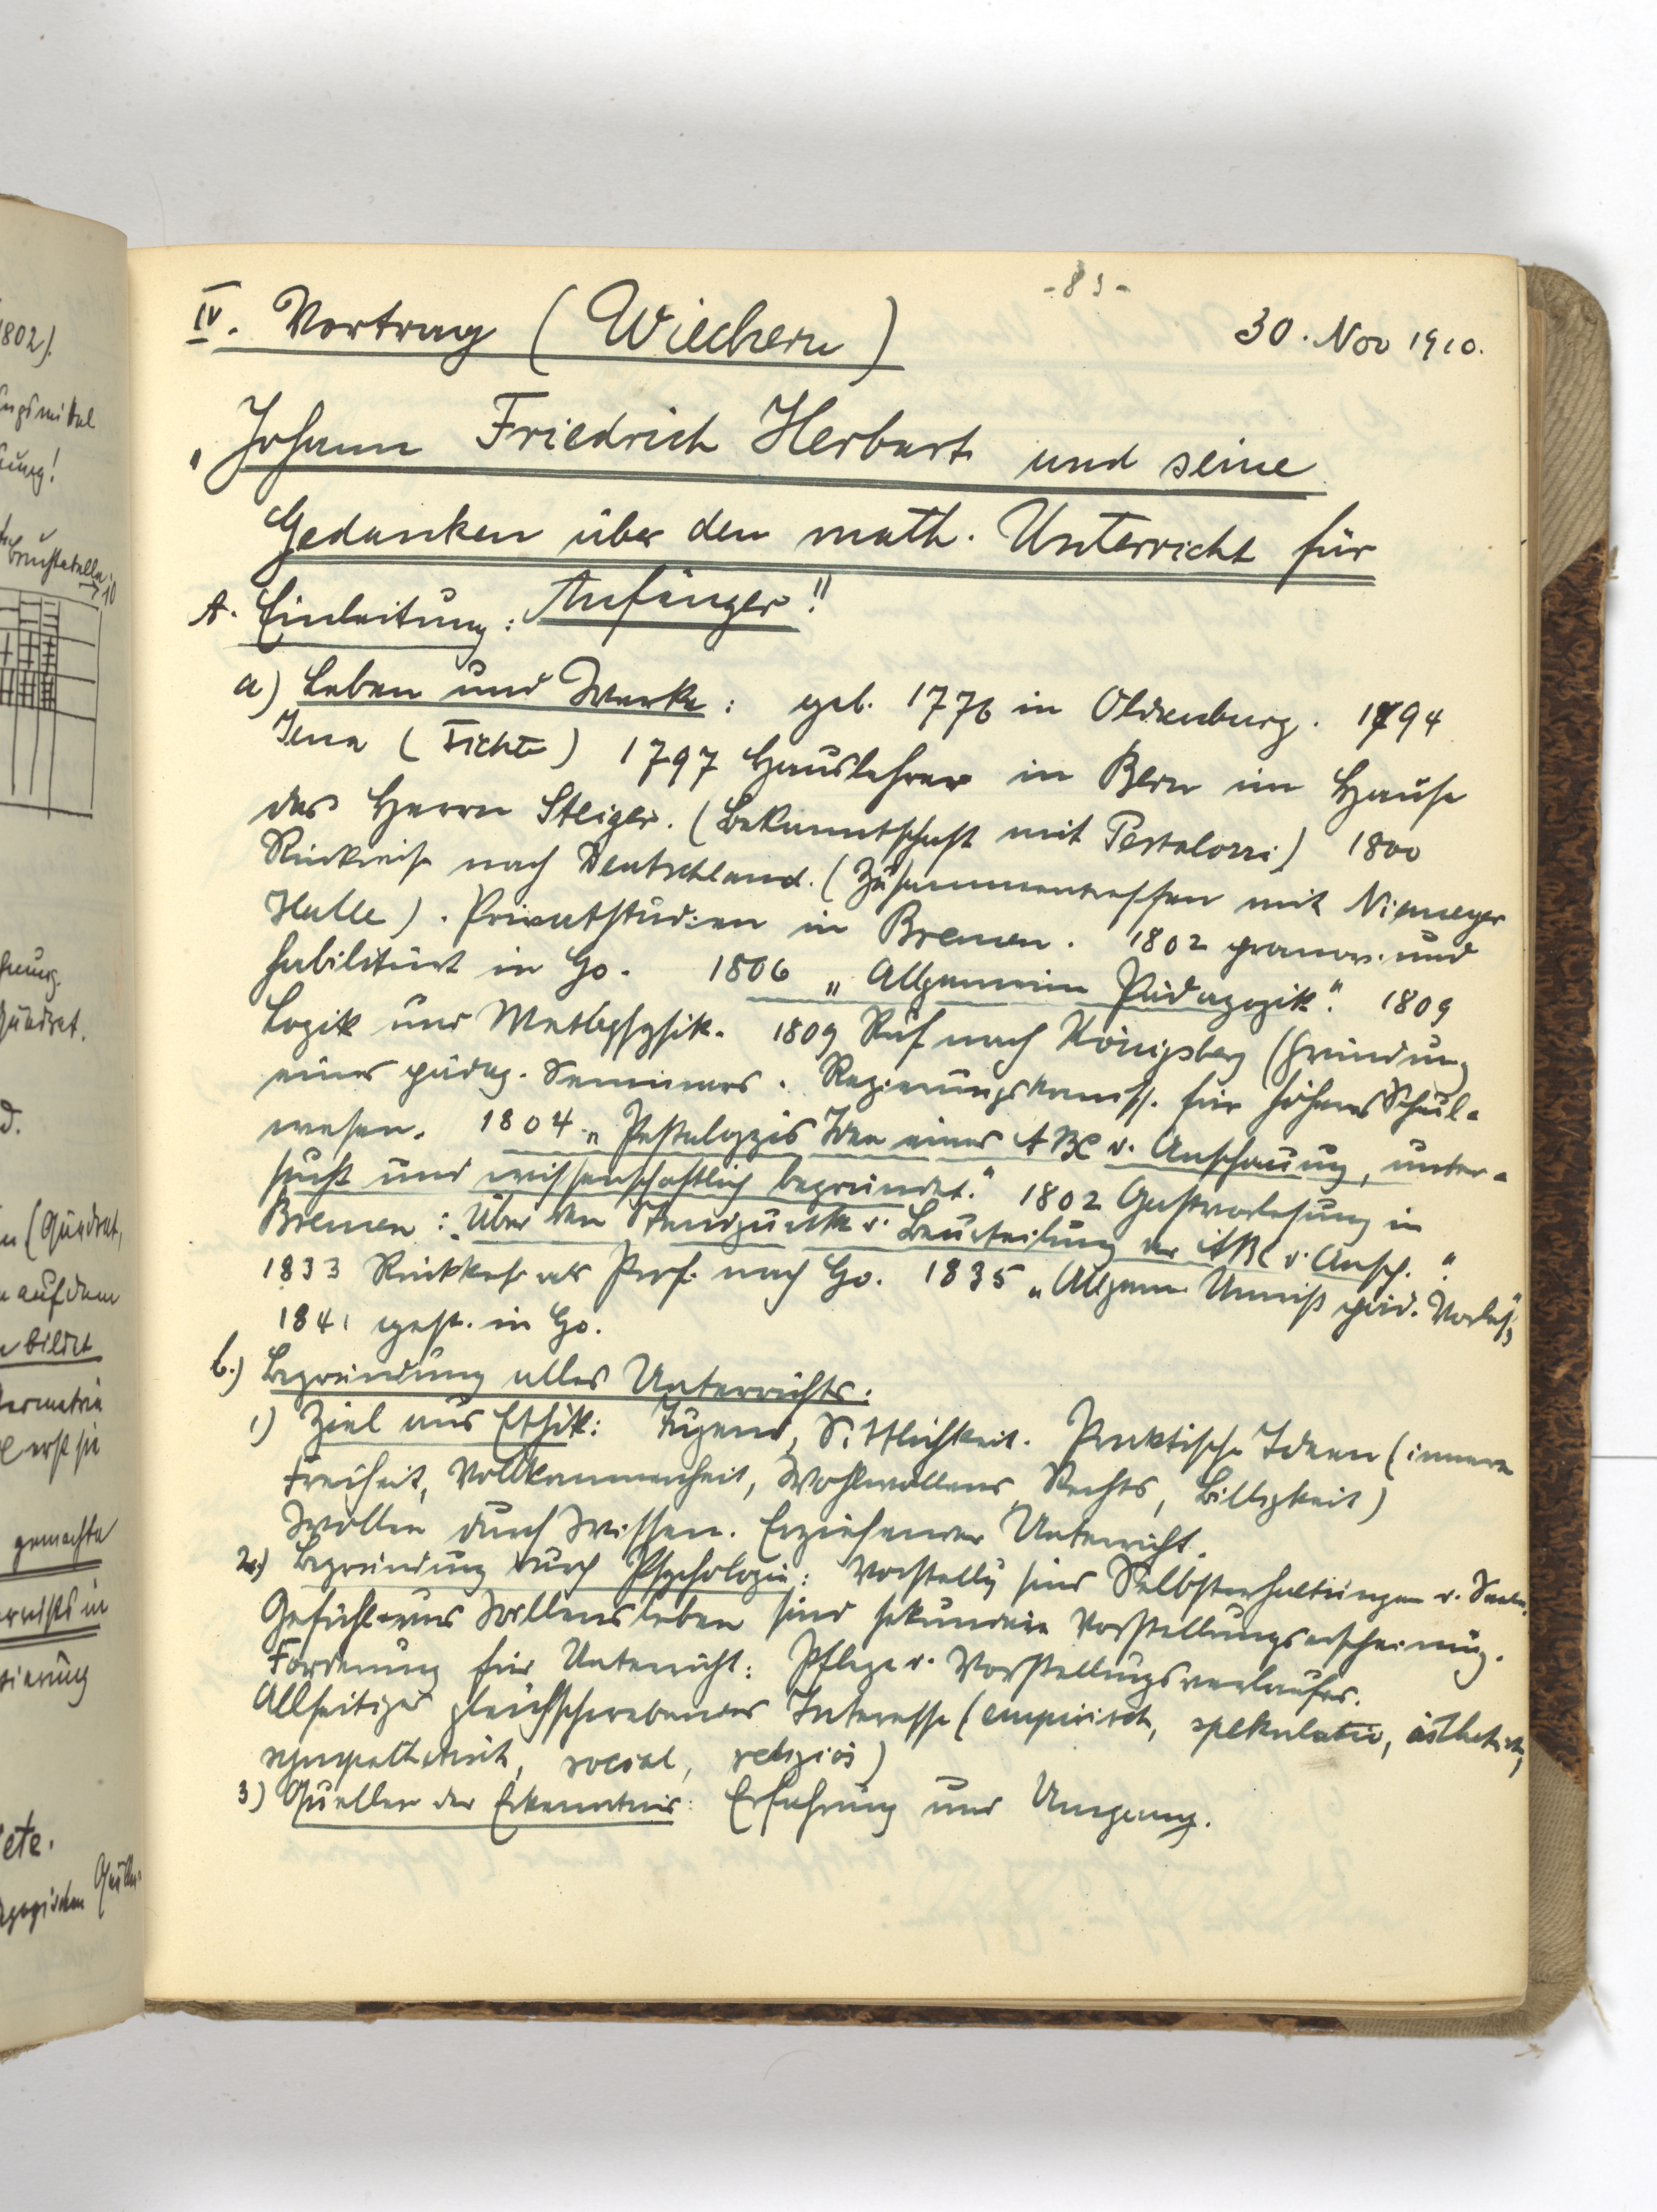 - 83 -
IV. Vortrag (Wiechern)
30. Nov 1910.
"Johann Friedrich Herbart und seine
Gedanken über den math. Unterricht für
Anfänger!"
A. Einleitung:
a) Leben und Werke: geb. 1776 in Oldenburg. 1794
Jena (Fichte) 1797 Hauslehrer in Bern im Hause
des Herrn Steiger. (Bekanntschaft mit Pestalozzi) 1800
Rückreise nach Deutschland. (Zusammentreffen mit Niemeyer
Halle). Privatstudien in Bremen. 1802 promov. und
habilitiert in Gö. 1806 „Allgemeine Pädagogik". 1809
Logik und Metaphysik. 1809 Ruf nach Königsberg (Gründung
eines pädag. Seminars. Regierungskomiss. für höheres Schul-
wesen. 1804 „Pestalozzis Idee eines ABC d. Anschauung, unter-
sucht und wissenschaftlich begründet." 1802 Gastvorlesung in
Bremen: „Über den Standpunkt d. Beurteilung der ABC d. Ansch."
1833 Rückkehr als Prof. nach Gö. 1835 „Allgem. Umriß päd. Vorles."
1841 gest. in Gö.
b.) Begründung alles Unterrichts:
1) Ziel aus Ethik: Tugend, Sittlichkeit. Praktische Ideen (innere
Freiheit, Vollkommenheit, Wohlwollens, Rechts, Billigkeit)
Wollen durch Wissen. Erziehender Unterricht.
2.) Begründung durch Psychologie: Vorstellg sind Selbsterhaltungen d. Seele.
Gefühl- und Willensleben sind sekundäre Vorstellungserscheinung.
Forderung für Unterricht: Pflege d. Vorstellungsverlaufes.
Allseitiges gleichschwebendes Interesse (empirisch, spekulativ, ästhetisch,
sympathetisch, social, religiös)
3) Quellen der Erkenntnis: Erfahrung und Umgang.
1802).
auf dem
bildet
erst sie
gemachte